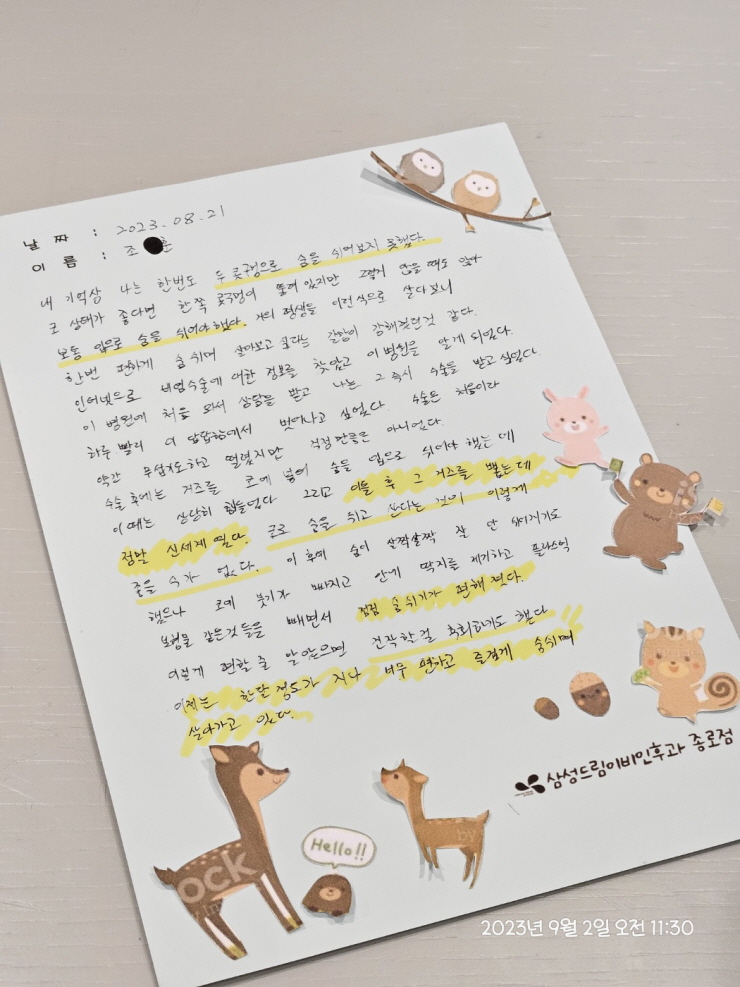 날 짜 : 2023.08.21
이 름 : 조 훈
내 기억상 나는 한번도 두 콧구멍으로 숨을 쉬어보지 못했다.
코 상태가 좋다면 한쪽 콧구멍이 뚫려 있지만 그렇지 않을 때도 많아
보통 입으로 숨을 쉬어야 했다. 거의 평생을 이런 식으로 살다보니
한번 편하게 숨 쉬며 살아보고 싶다는 갈망이 강해졌던것 같다.
인터넷으로 비염수술에 대한 정보를 찾았고 이 병원을 알게 되었다.
이 병원에 처음 와서 상담을 받고 나는 그 즉시 수술을 받고 싶었다.
하루 빨리 이 답답함에서 벗어나고 싶었다. 수술은 처음이라
약간 무섭기도하고 떨렸지만 걱정만큼은 아니었다.
수술 후에는 거즈를 코에 넣어 숨을 입으로 쉬어야 했는데
이때는 상당히 힘들었다 그리고 이틀 후 그 거즈를 뽑는데
정말 신세계였다. 코로 숨을 쉬고 산다는 것이 이렇게
좋을 수가 없다. 이 후에 숨이 살짝살짝 잘 안 쉬어지기도
했으나 코에 붓기가 빠지고 안에 딱지를 제거하고 플라스틱
보형물 같은것 들을 빼면서 점점 숨쉬기가 편해졌다.
이렇게 편할 줄 알았으면 진작할걸 후회하기도 했다
이제는 한달 정도가 지나 너무 편하고 즐겁게 숨쉬며
살아가고 있다.
삼성드림이비인후과 종로점
Hello!!
ock
by
2023년 9월 2일 오전 11:30